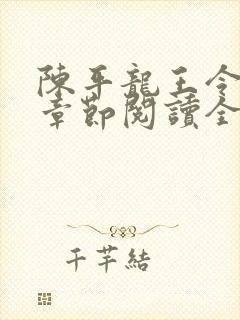 陳平龍王令
章節閱讀全
千芊結